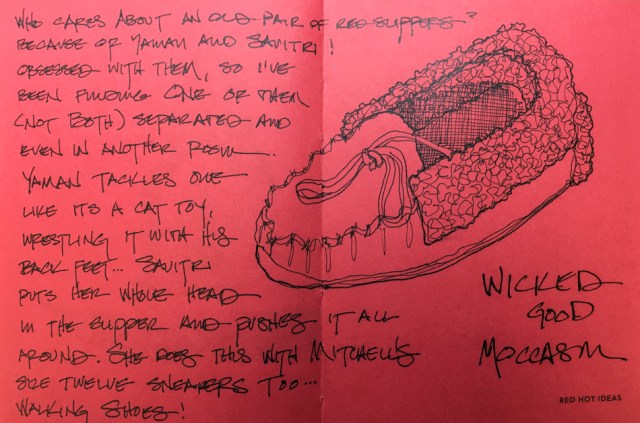 WHO CARES ABOUT AN OLD PAIR OF RED SLIPPERS?
BECAUSE OF YAMAN AND SAVITRI!
OBSESSED WITH THEM, SO I'VE
BEEN FINDING ONE OF THEM
(NOT BOTH) SEPARATED AND
EVEN IN ANOTHER ROOM.
YAMAN TACKLES ONE
LIKE ITS A CAT TOY,
WRESTLING IT WITH HIS
BACK FEET... SAVITRI
PUTS HER WHOLE HEAD
IN THE SLIPPER AND PUSHES IT ALL
AROUND. SHE DOES THIS WITH MITCHELL'S
SIZE TWELVE SNEAKERS TOO...
WALKING SHOES!
WICKED
GOOD
MOCCASIN
RED HOT IDEAS